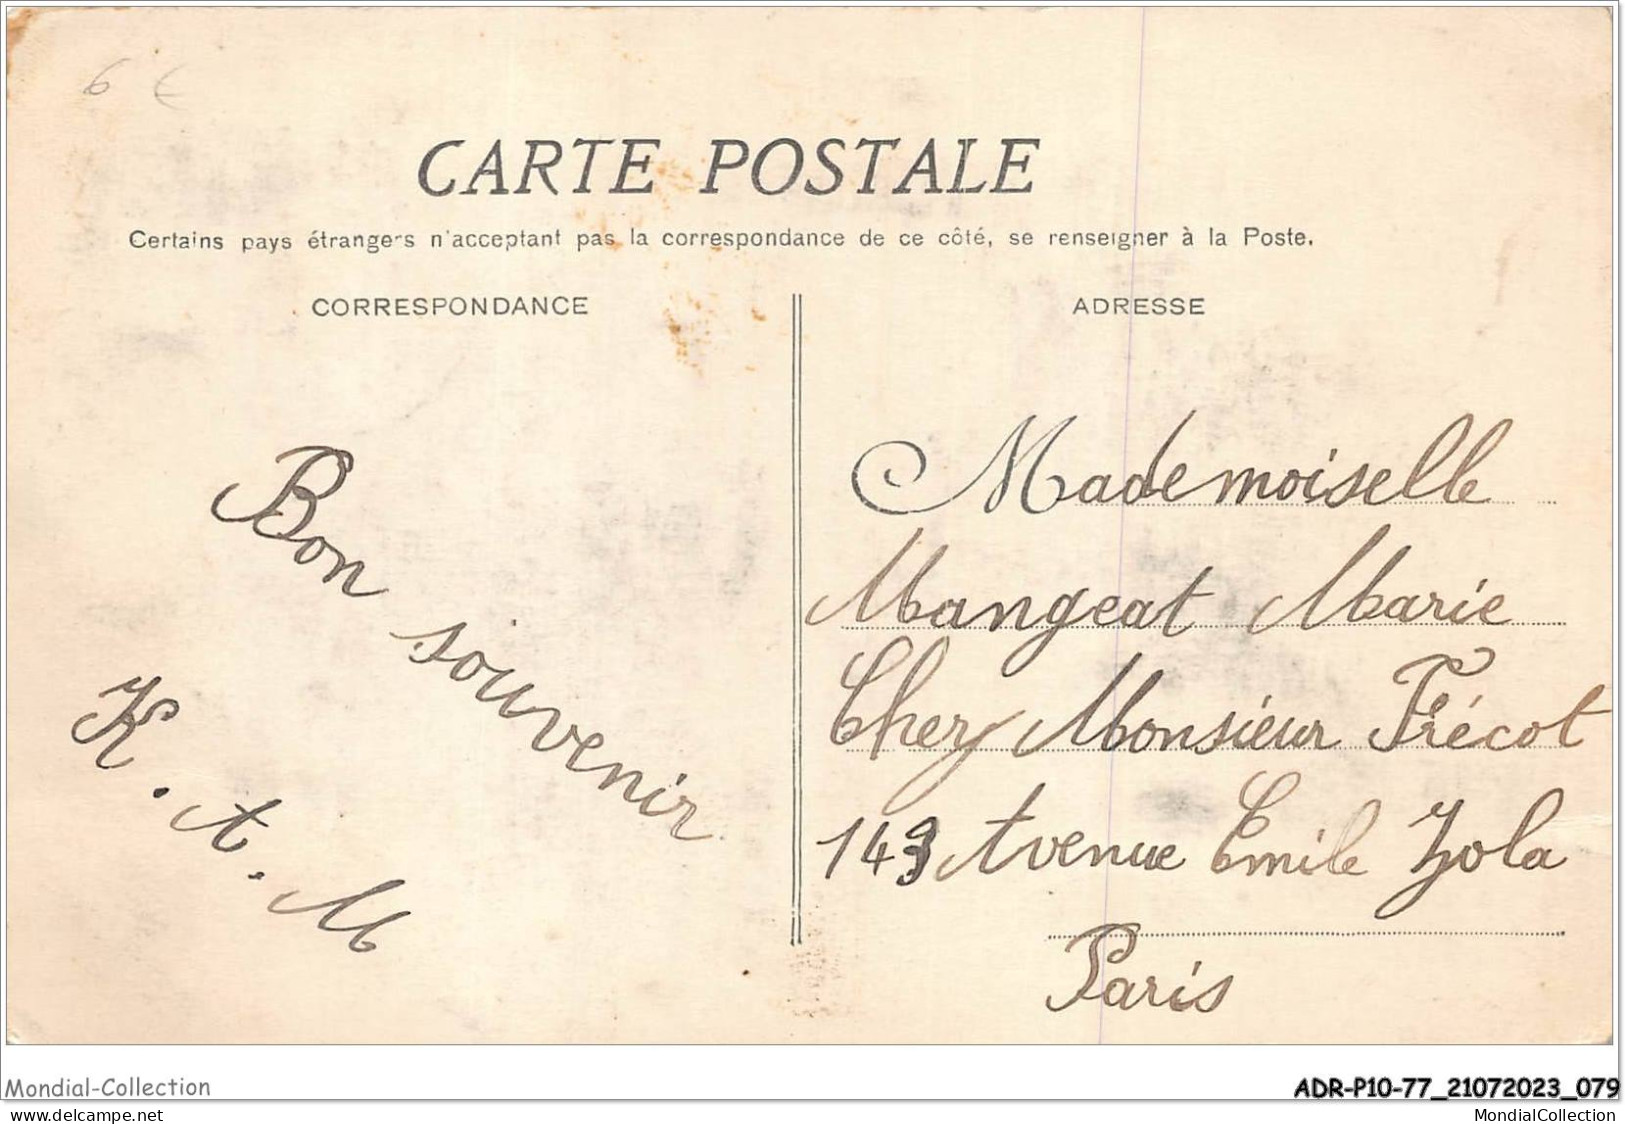 6 €
CARTE POSTALE
Certains pays étrangers n'acceptant pas la correspondance de ce côté, se renseigner à la Poste.
CORRESPONDANCE
Bon souvenir
K. A. M
ADRESSE
Mademoiselle
Mangeat Marie
Chez Monsieur Frécot
143 Avenue Emile Zola
Paris
Mondial-Collection
ADR-P10-77_21072023_079
www.delcampe.net
MondialCollection